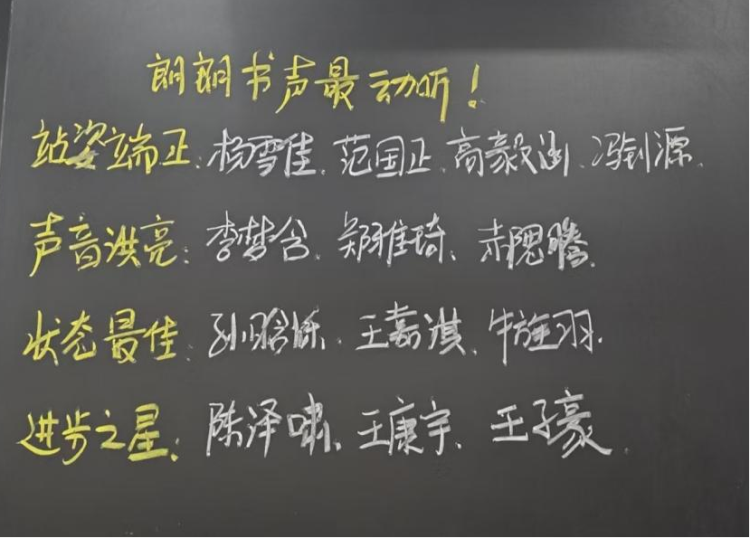 朗朗书声最动听！
站姿端正：杨雪佳、范国正、高毅涵、冯钊源、
声音洪亮：李梦含、郑雅琦、赤隗腾、
状态最佳：孙晗烁、王嘉淇、牛旌羽、
进步之星：陈泽啸、王康宇、王子豪、